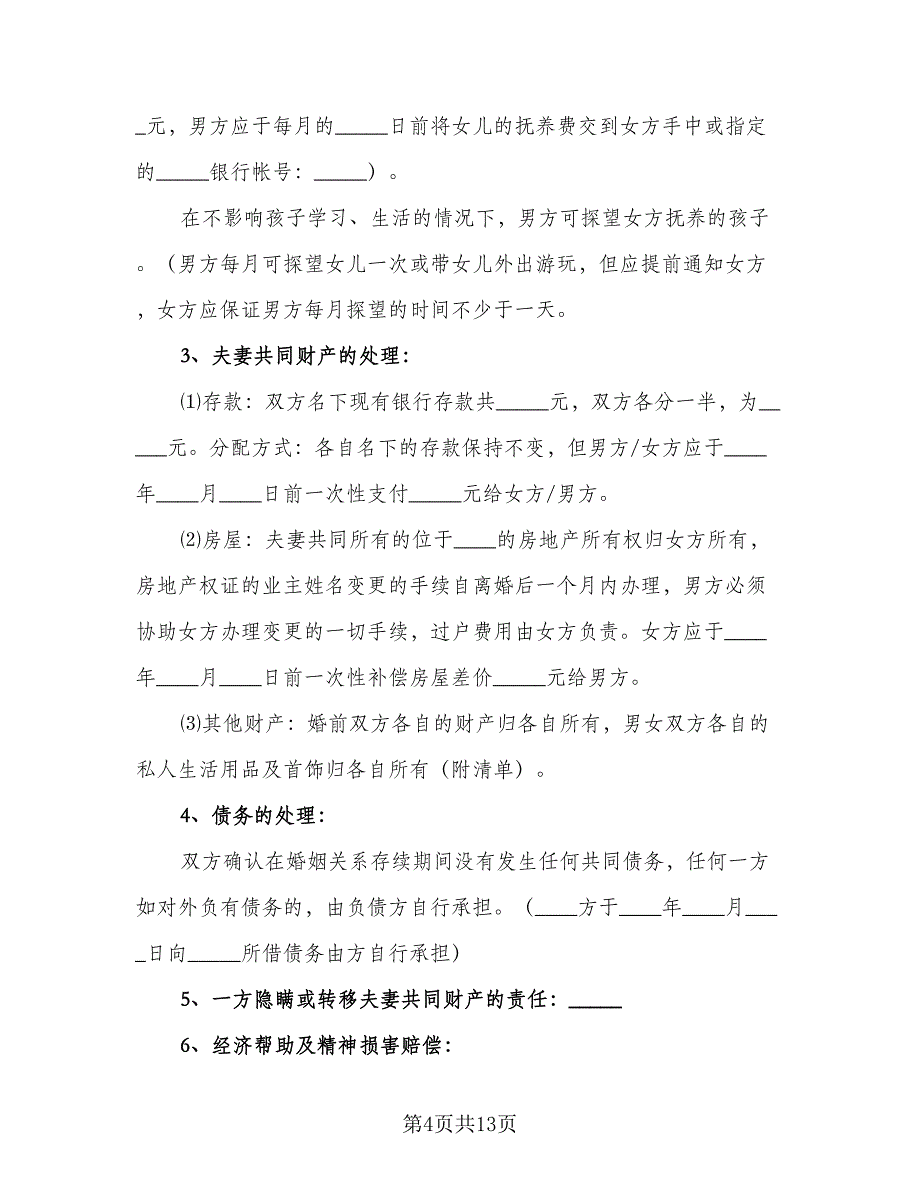 _元，男方应于每月的_____日前将女儿的抚养费交到女方手中或指定
的_____银行帐号：_____）。
在不影响孩子学习、生活的情况下，男方可探望女方抚养的孩子
。（男方每月可探望女儿一次或带女儿外出游玩，但应提前通知女方
，女方应保证男方每月探望的时间不少于一天。
3、夫妻共同财产的处理：
⑴存款：双方名下现有银行存款共_____元，双方各分一半，为__
___元。分配方式：各自名下的存款保持不变，但男方/女方应于____
年____月____日前一次性支付_____元给女方/男方。
⑵房屋：夫妻共同所有的位于____的房地产所有权归女方所有，
房地产权证的业主姓名变更的手续自离婚后一个月内办理，男方必须
协助女方办理变更的一切手续，过户费用由女方负责。女方应于____
年____月____日前一次性补偿房屋差价_____元给男方。
⑶其他财产：婚前双方各自的财产归各自所有，男女双方各自的
私人生活用品及首饰归各自所有（附清单）。
4、债务的处理：
双方确认在婚姻关系存续期间没有发生任何共同债务，任何一方
如对外负有债务的，由负债方自行承担。（____方于____年____月___
_日向_____所借债务由方自行承担）
5、一方隐瞒或转移夫妻共同财产的责任：_____
6、经济帮助及精神损害赔偿：
第4页共13页